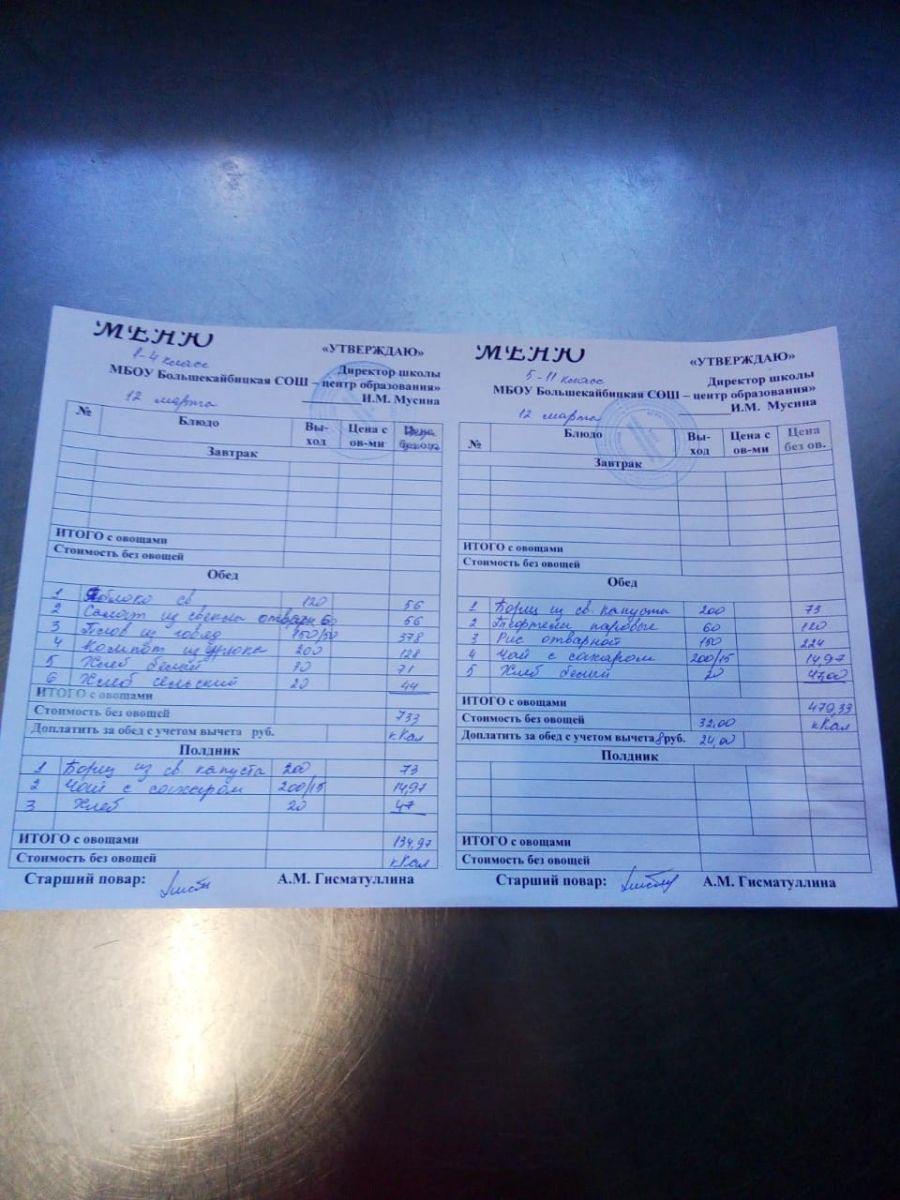 МЕНЮ
1-4 класс
«УТВЕРЖДАЮ»
Директор школы
МБОУ Большекайбицкая СОШ – центр образования»
И.М. Мусина
12 марта
№ Блюдо Вы-ход Цена с ов-ми Цена
Завтрак
ИТОГО с овощами
Стоимость без овощей
Обед
1 Яблоко св 120 56
2 Салат из свеклы отварн 60 56
3 Плов из говяд 150/50 378
4 Компот из 200 128
5 Хлеб белый 30 71
6 Хлеб сельский 20 44
ИТОГО с овощами
Стоимость без овощей 733
Доплатить за обед с учетом вычета руб. кКал
Полдник
1 Борщ из св капуста 200 73
2 Чай с сахаром 200/15 14,97
3 Хлеб 20 47
ИТОГО с овощами 134,97
Стоимость без овощей кКал
Старший повар: А.М. Гисматуллина
МЕНЮ
5-11 класс
«УТВЕРЖДАЮ»
Директор школы
МБОУ Большекайбицкая СОШ – центр образования»
И.М. Мусина
12 марта
№ Блюдо Вы-ход Цена с ов-ми Цена без ов.
Завтрак
ИТОГО с овощами
Стоимость без овощей
Обед
1 Борщ из св. капуста 200 73
2 Тефтели паровые 60 120
3 Рис отварной 150 224
4 Чай с сахаром 200/15 14,97
5 Хлеб белый 20 47,00
ИТОГО с овощами 479,33
Стоимость без овощей 32,00 кКал
Доплатить за обед с учетом вычета 8 руб. 24,00
Полдник
ИТОГО с овощами
Стоимость без овощей
Старший повар: А.М. Гисматуллина